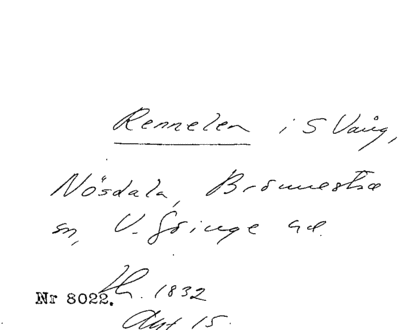 Rennelen i S Vång,
Nösdala, Brönnestad
sn, V. Göinge hd.
Nr 8022. Th. 1832
Avt 15.